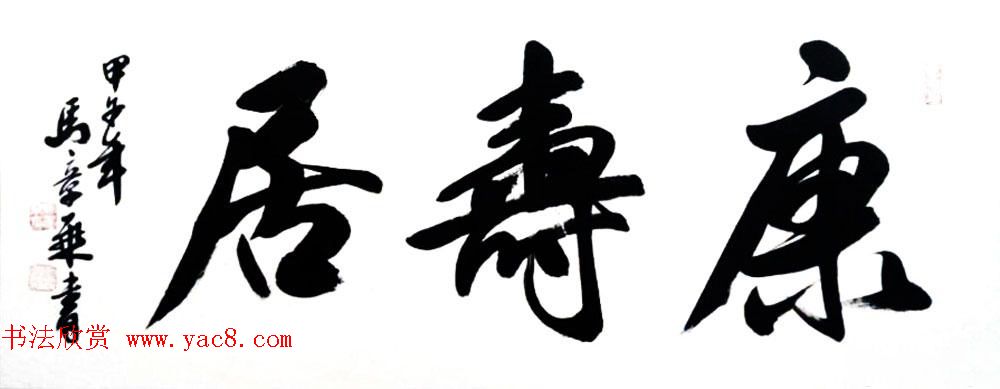 康壽居
甲午年
馬章乘書
书法欣赏 www.yac8.com